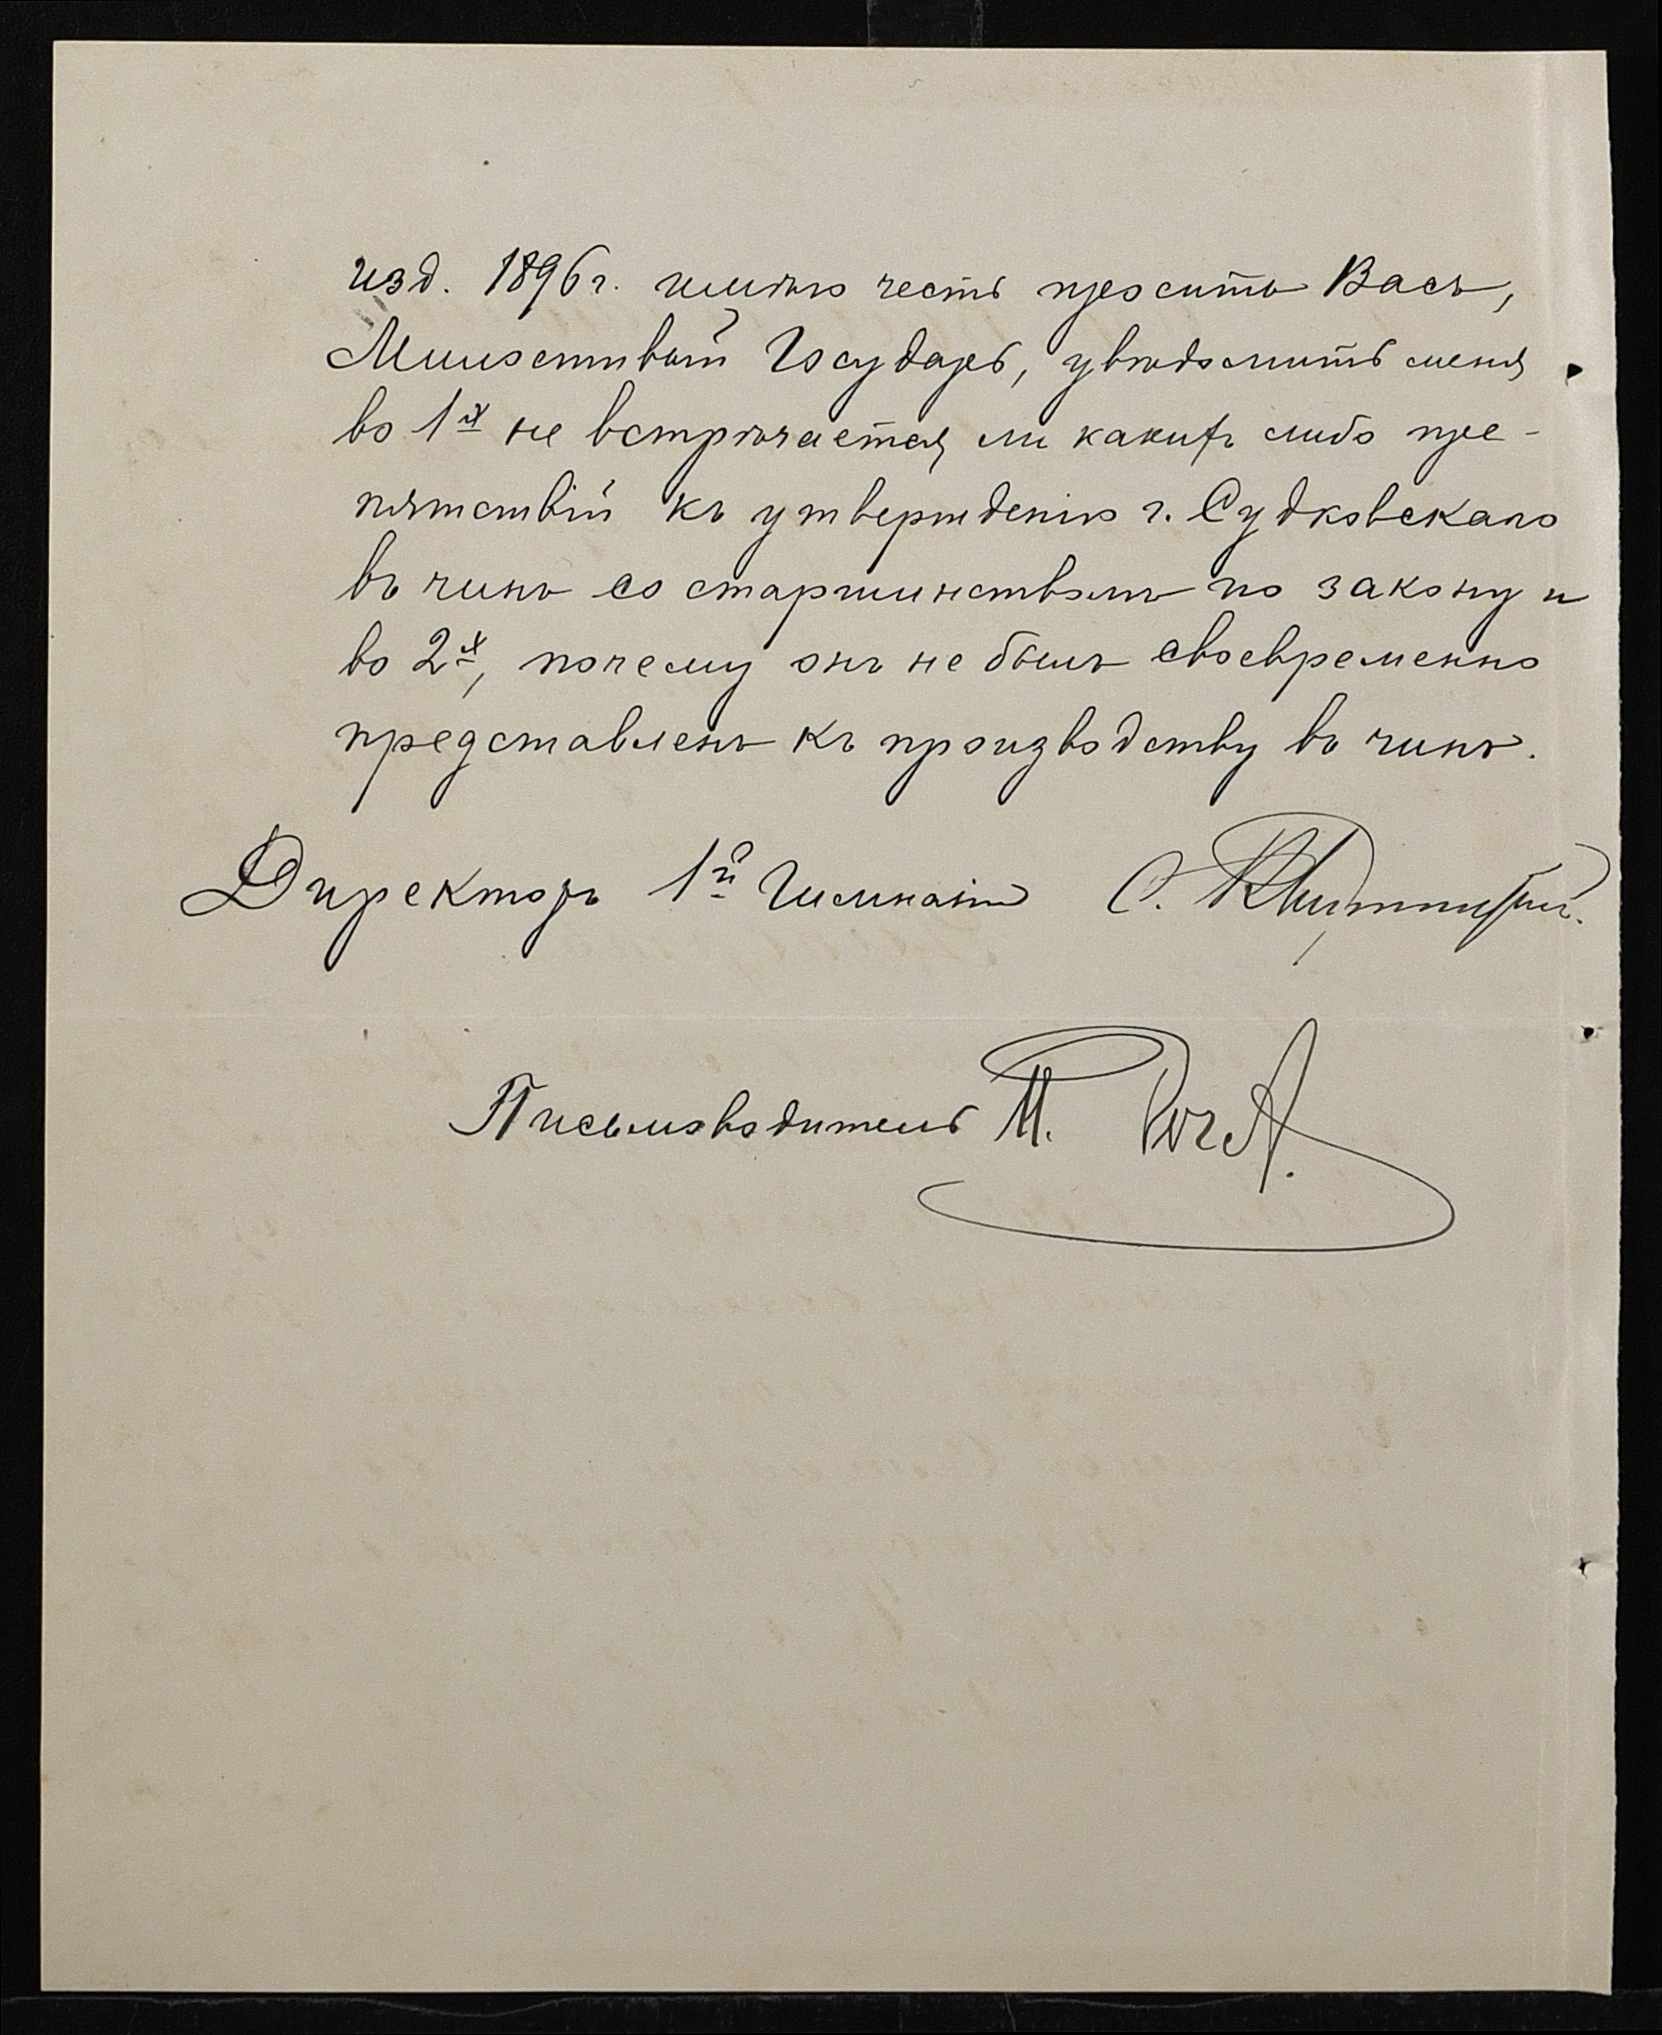 изд. 1896 г. имѣю честь просить Васъ,
Милостивый Государь, увѣдомить меня
во 1х не встрѣчается ли какихъ либо пре-
пятствій къ утвержденію г. Судковскаго
въ чинѣ со старшинствомъ по закону и
во 2х, почему онъ не былъ своевременно
представленъ къ производству въ чинъ.
Директоръ 1й Гимназіи С.
Письмоводитель М.